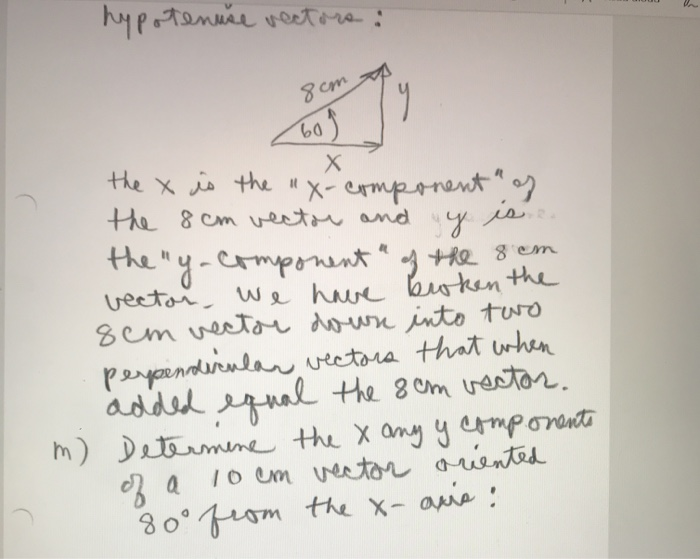 hypotenuse vectors:
8cm
y
60
x
the x is the "x-component" of
the 8 cm vector and y is
the "y-component" of the 8 cm
vector. We have broken the
8cm vector down into two
perpendicular vectors that when
added equal the 8cm vector.
m) Determine the x any y components
of a 10 cm vector oriented
80° from the x-axis: